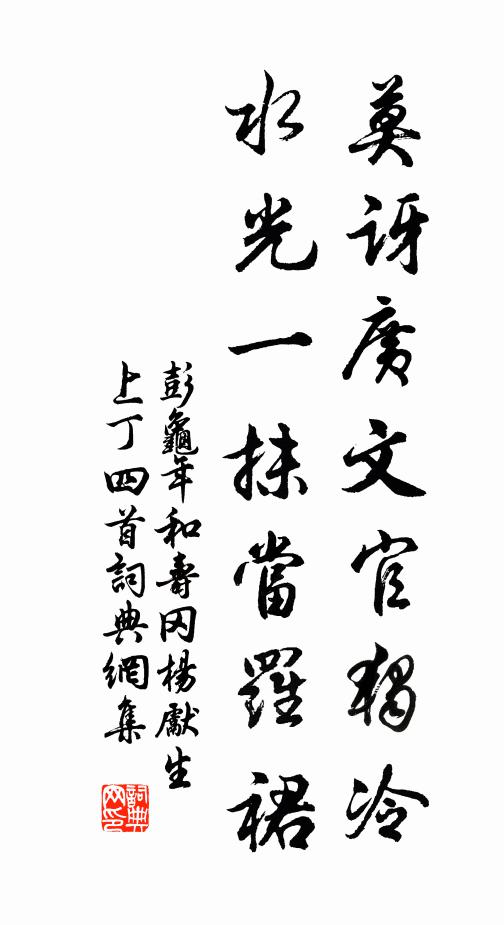 莫訝廣文官獨冷
水光一抹當羅裙
彭龜年和壽冈楊獻生
上丁四首詞典網集
詞典
网印